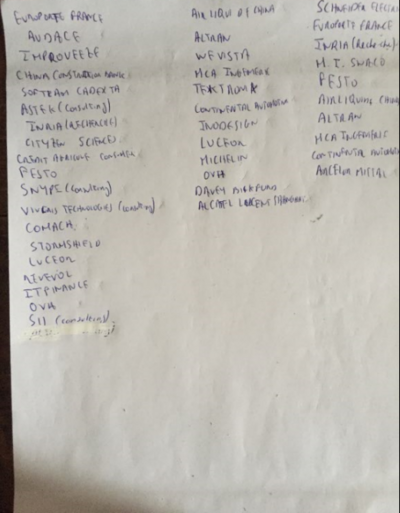 EUROPORTE FRANCE
AUDACE
IMPROVEEZE
CHINA CONSTRUCTION BANK
SOFTEAM CADEXTA
ASTEK (consulting)
INRIA (ASCIENCES)
CITYZEN SCIENCES
CREDIT AGRICOLE CONSUMER
PESTO
SNYPE (consulting)
VIVERIS TECHNOLOGIES (consulting)
COMACH
STORMSHIELD
LUCEOR
NIVEVOL
IT FINANCE
OVH
SII (consulting)
AIR LIQUIDE CHINA
ALTRAN
WEVISTA
MCA INGENIERIE
TEKTRONIX
CONTINENTAL AUTOMOTIVE
INDODESIGN
LUCEOR
MICHELIN
OVH
DAVEY BICKFORD
ALCATEL LUCENT SHANGHAI
SCHNEIDER ELECTRIC
EUROPORTE FRANCE
INRIA (Recherche)
M.I. SWACO
PESTO
AIR LIQUIDE CHINA
ALTRAN
MCA INGENIERIE
CONTINENTAL AUTOMOTIVE
ARCELOR MITTAL